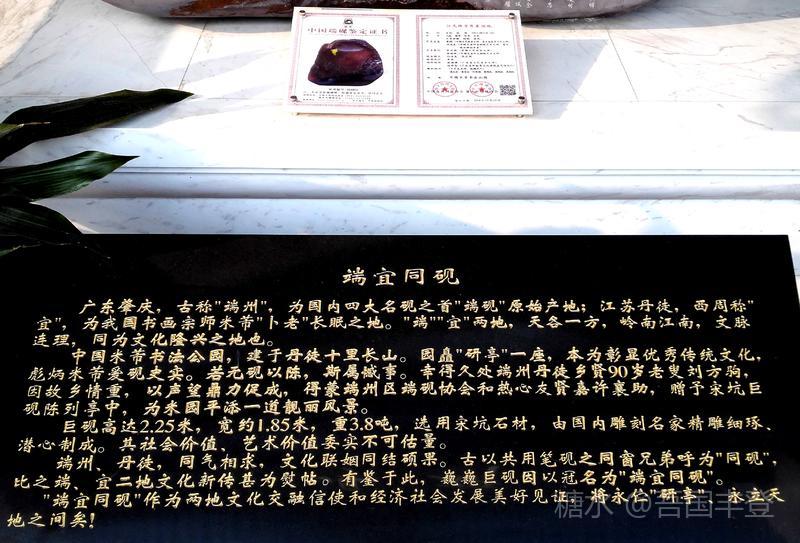 中国端砚鉴定证书
端宜同砚
广东肇庆，古称"端州"，为国内四大名砚之首"端砚"原始产地；江苏丹徒，西周称"
宜"，为我国书画宗师米芾"卜老"长眠之地。"端""宜"两地，天各一方，岭南江南，文脉
连理，同为文化隆兴之地也。
中国米芾书法公园，建于丹徒十里长山。园矗"研亭"一座，本为彰显优秀传统文化，
彪炳米芾爱砚史实。若无砚以陈，斯属憾事。幸得久处端州丹徒乡贤90岁老叟刘方驹，
因故乡情重，以声望鼎力促成，得蒙端州区端砚协会和热心友贤嘉许襄助，赠予宋坑巨
砚陈列亭中，为米园平添一道靓丽风景。
巨砚高达2.25米，宽约1.85米，重3.8吨，选用宋坑石材，由国内雕刻名家精雕细琢、
潜心制成。其社会价值、艺术价值委实不可估量。
端州、丹徒，同气相求，文化联姻同结硕果。古以共用笔砚之同窗兄弟呼为"同砚"，
比之端、宜二地文化新传甚为熨帖。有鉴于此，巍巍巨砚因以冠名为"端宜同砚"。
"端宜同砚"作为两地文化交融信使和经济社会发展美好见证，将永伫"研亭"，永立天
地之间矣！
糖水 @晋国丰登